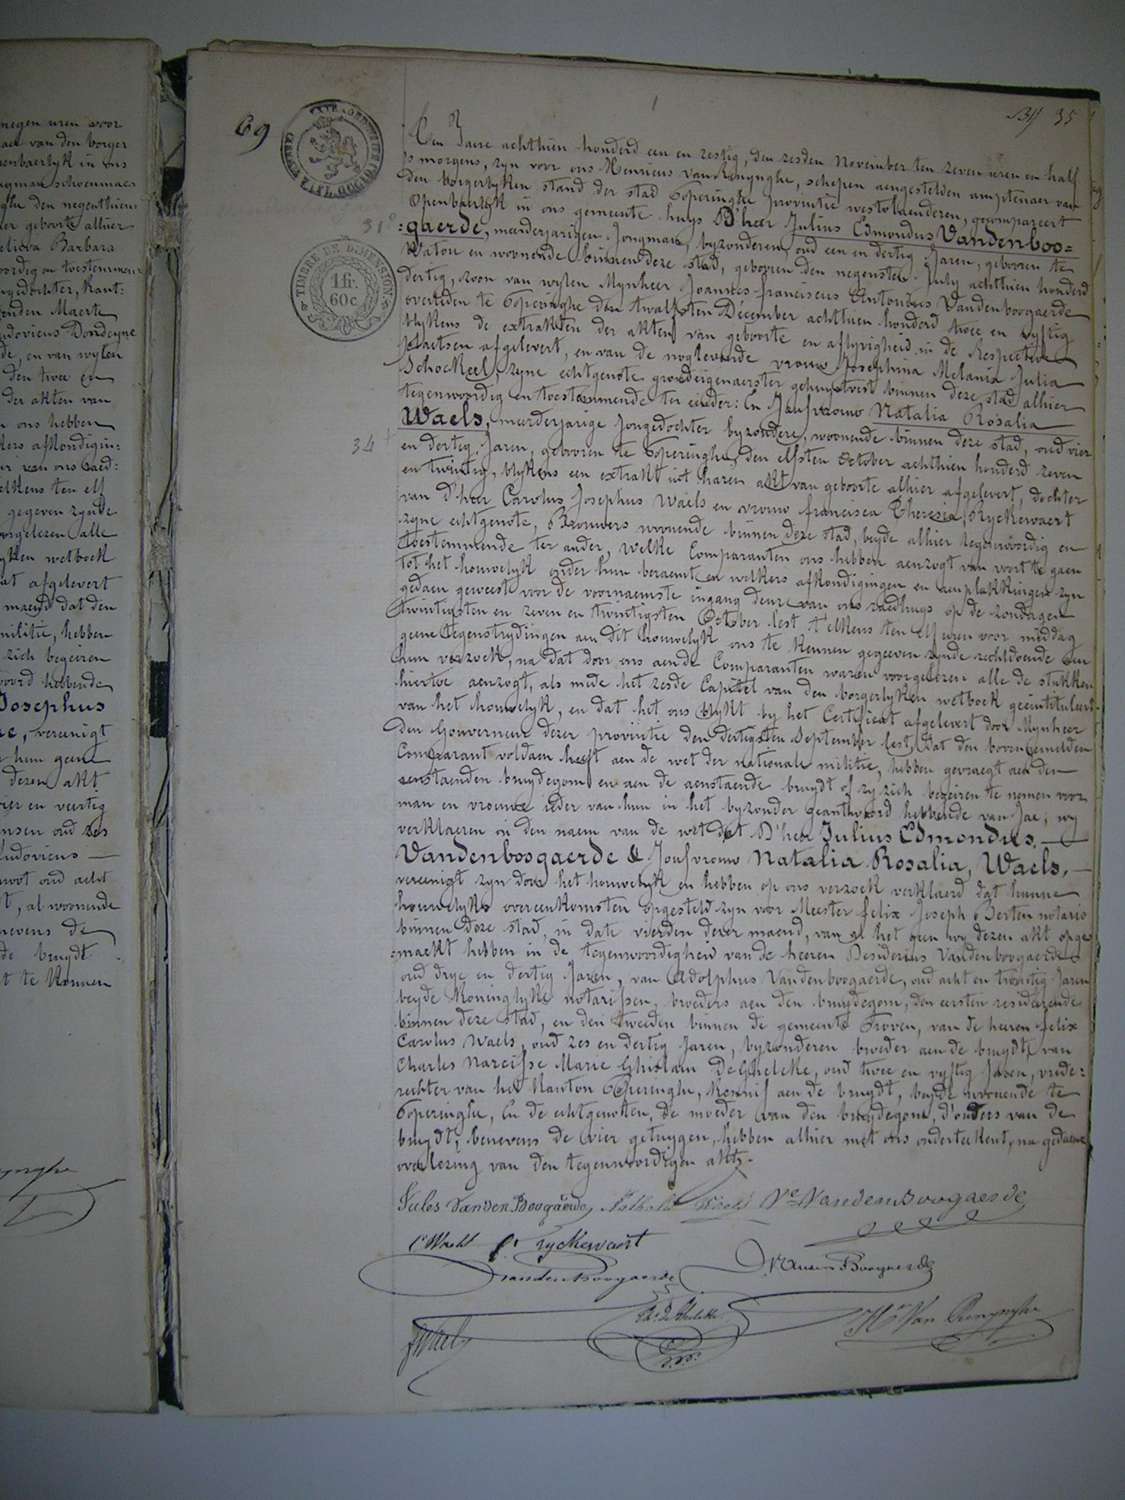 negen uren voor
van den borger
openbaerlyk in ons
jongman schoenmaer
den negenthiens
geboorte alhier
Barbara
en toestemmende
jongedochter, kant:
Maerte
Ludovicus Dondeyne
en van wylen
den twee en
der akten van
ons hebben
afkondigin:
van ons raed:
telkens ten elf
gegeven zynde
voorgelezen alle
wetboek
afgelevert
maend dat den
militie, hebben
zich begeiren
hebbende
Josephus
vereenigt
geene
dezen akt
vier en veertig
oud zes
Ludovicus
oud acht
al woonende
benevens de
de bruydt
te kennen
69
35
1 fr.
60c.
TIMBRE DE DIMENSION
31
34
Den Jaere achthien honderd een en zestig, den zesden November ten zeven uren en half
's morgens, zyn voor ons Henricus van Renynghe, schepen aengestelden amptenaer van
den borgerlyken stand der stad Poperinghe provintie westvlaenderen, gecompareert
openbaerlyk in ons gemeente huys D'heer Julius Edmondus Vandenboo=
=gaerde, meerderjarigen Jongman, byzonderen, oud een en dertig Jaren, geboren te
Watou en woonende binnen deze stad, geboren den negensten July achthien honderd
dertig, zoon van wylen Mynheer Joannes-franciscus Antonius Vandenboogaerde
overleden te Poperinghe den twalfsten December achthien honderd twee en vyftig
blykens de extrakten der akten van geboorte en aflyvigheid in de Respective
plaetsen afgelevert, en van de nog levende vrouw Josephina Melania Julia
Schockeel, zyne echtgenote, grondeigenaerster gehuysvest binnen deze stad alhier
tegenwoordig en toestemmende ter eender: En Joufvrouw Natalia Rosalia
Waels, meerderjarige Jongedochter byzondere, woonende binnen deze stad, oud vier
en dertig Jaren, geboren te Poperinghe, den elfsten october achthien honderd zeven
en twintig, blykens een extrakt uit haren akt van geboorte alhier afgelevert, dochter
van d'heer Carolus Josephus Waels en vrouw francisca Theresia Ryckewaert
zyne echtgenote, Brouwers woonende binnen deze stad, beyde alhier tegenwoordig en
toestemmende ter ander, welke Comparanten ons hebben aenzogt van voort te gaen
tot het houwelyk onder hun beraemt en welkers afkondigingen en aenplakkingen zyn
gedaen geweest voor de voornaemste ingang deure van ons raedhuys op de zondagen
twintigsten en zeven en twintigsten October lest t'elkens ten elf uren voor middag
geene tegenstrydingen aen dit houwelyk ons te kennen gegeven zynde rechtdoende aen
hun verzoek, na dat door ons aen de Comparanten waren voorgelezen alle de stukken
hiertoe aenzogt, als mede het zesde Capittel van den borgerlyken wetboek geintituleert
van het houwelyk, en dat het ons blykt by het Certificat afgelevert door Mynheer
Den Gouverneur dezer provintie den dertigsten September lest, dat den bovengemelden
Comparant voldaen heeft aen de wet der nationale militie, hebben gevraegt aen den
aenstaenden bruydegom en aen de aenstaende bruydt of zy zich begeiren te nemen voor
man en vrouwe ieder van hun in het byzonder geantwoord hebbende van Jae, wy
verklaeren in den naem van de wet dat D'heer Julius Edmondus,
Vandenboogaerde & Joufvrouw Natalia Rosalia, Waels,
vereenigt zyn door het houwelyk en hebben op ons verzoek verklaerd dat hunne
houwelyks overeenkomsten opgesteld zyn voor Meester felix Joseph Berten notaris
binnen deze stad, in date vierden dezer maend, van al het geen wy dezen akt opge
maekt hebben in de tegenwoordigheid van de heeren Desiderius Vandenboogaerde
oud drye en dertig Jaren, van Adolphus Vandenboogaerde, oud acht en twintig Jaren
beyde Koninglyke notarissen, broeders aen den bruydegom, den eersten resideerende
binnen deze stad, en den tweeden binnen de gemeente Proven, van de heeren felix
Carolus Waels, oud zes en dertig Jaren, byzonderen broeder aen de bruydt, van
Charles Narcisse Marie Ghislain De Ghelcke, oud twee en vyftig Jaren, vrede:
rechter van het Kanton Poperinghe, Kozyn aen de bruydt, beyde woonende te
Poperinghe, En de echtgenoten, de moeder van den bruydegom, d'ouders van de
bruydt, benevens de vier getuygen, hebben alhier met ons onderteekent, na gedaene
overlezing van den tegenwoordigen akt.
Jules Vanden Boogaerde Nathalie Waels Ve Vandenboogaerde
C Waels Ryckewaert
Vanden Boogaerde D. Vanden Boogaerde
F Waels Hri Van Renynghe